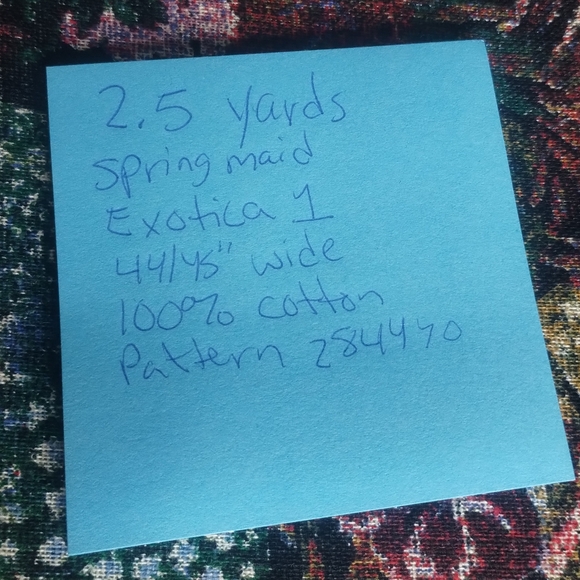 2.5 yards
Spring maid
Exotica 1
44/45" wide
100% cotton
Pattern 284470